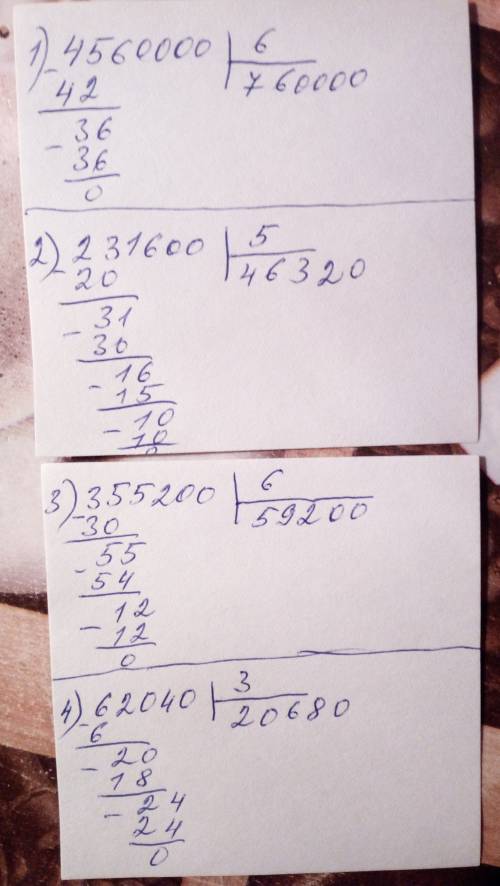 1) - 4560000 | 6
42 760000
- 36
36
0
2) - 231600 | 5
20 46320
- 31
30
- 16
15
- 10
10
0
3) - 355200 | 6
30 59200
- 55
54
- 12
12
0
4) - 62040 | 3
6 20680
- 20
18
- 24
24
0